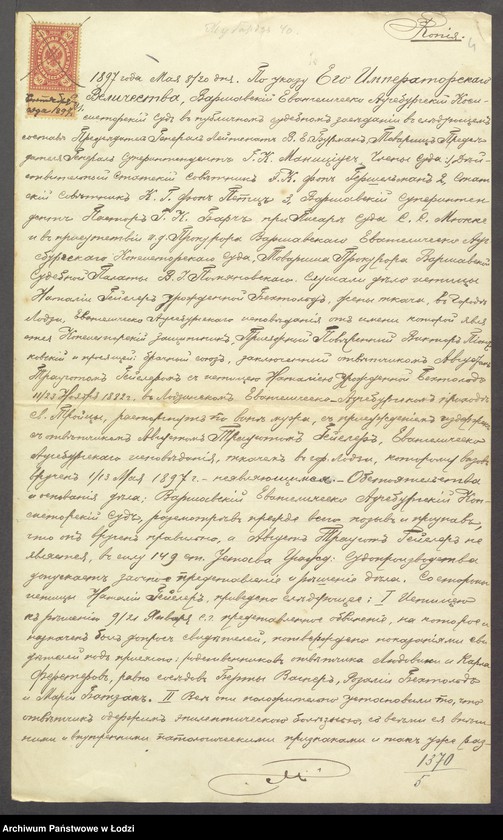 Копія.
1897 года Мая 8/20 дня. По указу Его Императорскаго
Величества, Варшавскій Евангелическо Аугсбургскій Конси-
сторскій Судъ въ публичномъ судебномъ засѣданіи въ слѣдующемъ
составѣ: Предсѣдатель Генералъ Лейтенантъ В. Е. Бурманъ, Товарищъ Предсѣ-
дателя Генералъ Суперинтендентъ Г. К. Маницiусъ, Члены Суда: 1, Дѣй-
ствительный Статскій Совѣтникъ Г. К. фонъ 2, Стат-
скій Совѣтникъ К. Г. фонъ 3, Варшавскій Суперинтен-
дентъ Пасторъ Г. К. Бартъ при Писарѣ Суда С. С.
и въ присутствіи и. д. Прокурора Варшавскаго Евангелическо Ауг-
сбургскаго Консисторскаго Суда, Товарища Прокурора Варшавской
Судебной Палаты В. І. Слушали дѣло истицы
Наталіи Гейслеръ урожденной Бектольдъ, жены ткача, въ городѣ
Лодзи, Евангелическо Аугсбургскаго исповѣданія отъ имени которой явля-
ется Консисторскій защитникъ, Присяжный Повѣренный Викторъ
и просящей: брачный союзъ, заключенный отвѣтчикомъ Августомъ
Трауготтъ Гейслеромъ съ истицею Наталіею урожденной Бектольдъ
11/23 Ноября 1882 г. въ Лодзинскомъ Евангелическо-Аугсбургскомъ приходѣ
Св. Троицы, расторгнуть по винѣ мужа, съ присужденіемъ издержекъ
съ отвѣтчика Августа Траугота Гейслеръ, Евангелическо
Аугсбургскаго исповѣданія, ткача въ гор. Лодзи, которому вызовъ
врученъ 1/13 Мая 1897 г. - неявляющимся. - Обстоятельства
и основанія дѣла: Варшавскій Евангелическо Аугсбургскій Кон-
систорскій Судъ, разсмотрѣвъ прежде всего позывъ и признавъ,
что онъ врученъ правильно, а Августъ Трауготъ Гейслеръ не
является, въ силу 149 ст. Устава Гражд: Судопроизводства
допускаетъ заочное представленіе и рѣшеніе дѣла. Со стороны
истицы Наталіи Гейслеръ, приведено слѣдующее: I Истицею
къ рѣшенію 9/21 Января с. г. представленное обвиненіе, на которое и
назначенъ былъ допросъ свидѣтелей, потверждено показаніями сви-
дѣтелей подъ присягою: родственниковъ отвѣтчика Людовики и Карла
равно сосѣдовъ Берты Вагнеръ, Розаліи Бектольдъ
и Маріи II Всѣ они положительно установили то, что
отвѣтчикъ одержимъ эпилептическою болѣзнью, со всѣми ея внѣш-
ними и внутренними патологическими признаками и такъ уже раз-
1370
5
Archiwum Państwowe w Łodzi